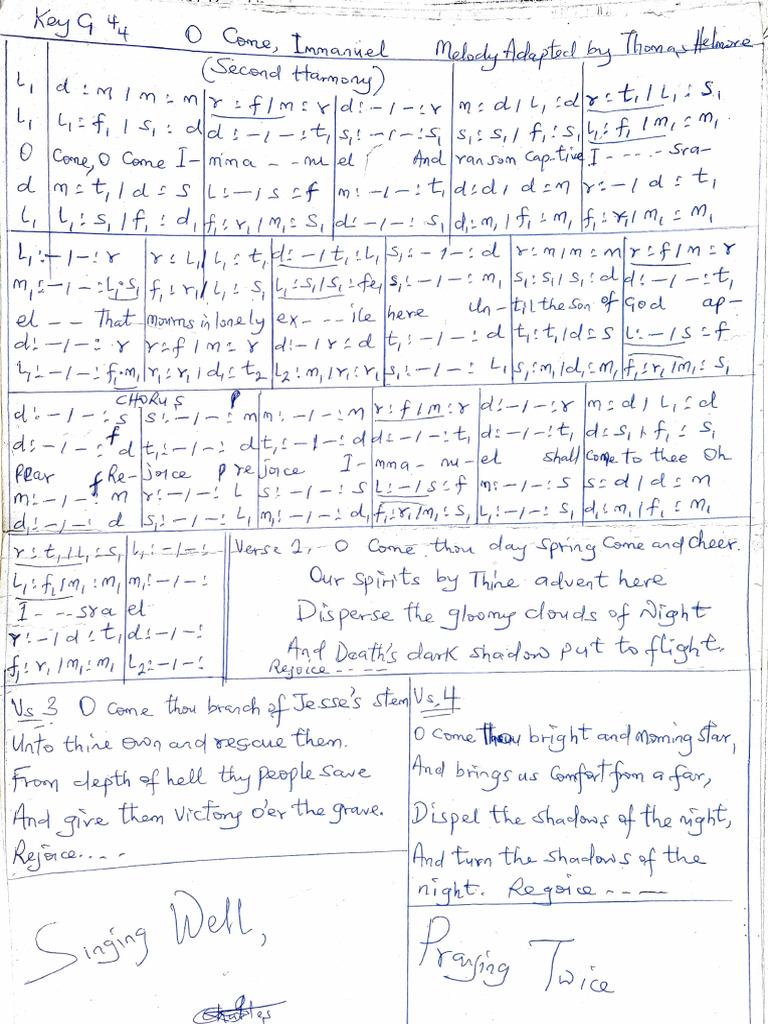 Key G 4/4 O Come, Immanuel Melody Adapted by Thomas Helmore
(Second Harmony)
L₁ | d : m / m : m | r : f / m : r | d : - / - : r | m : d / L₁ : d | r : t₁ / L₁ : s₁
L₁ | L₁ : f₁ / s₁ : d | d : - / - : t₁ | s₁ : - / - : s₁ | s₁ : s₁ / f₁ : s₁ | L₁ : f₁ / m₁ : m₁
O Come, O Come I- mma - - nu el And ransom Captive I - - - - - Sra-
d | m : t₁ / d : s | L : - / s : f | m : - / - : t₁ | d : d / d : m | r : - / d : t₁
L₁ | L₁ : s₁ / f₁ : d₁ | f₁ : r₁ / m₁ : s₁ | d : - / - : s₁ | d₁ : m₁ / f₁ : m₁ | f₁ : r₁ / m₁ : m₁
L₁ : - / - : r | r : L₁ / L₁ : t₁ | d : - / t₁ : L₁ | s₁ : - / - : d | r : m / m : m | r : f / m : r
m₁ : - / - : L₁ . s₁ | f₁ : r₁ / L₁ : s₁ | L₁ : s₁ / s₁ : fe₁ | s₁ : - / - : m₁ | s₁ : s₁ / s₁ : d | d : - / - : t₁
el - - That mourns in lonely ex - - - ile here Un - til the Son of God ap-
d : - / - : r | r : f / m : r | d : - / r : d | t₁ : - / - : d | t₁ : t₁ / d : s | L : - / s : f
L₁ : - / - : f₁ . m₁ | r₁ : r₁ / d₁ : t₂ | L₂ : m₁ / r₁ : r₁ | s₁ : - / - : L₁ | s₁ : m₁ / d₁ : m₁ | f₁ : r₁ / m₁ : s₁
CHORUS p
d : - / - : s | s : - / - : m | m : - / - : m | r : f / m : r | d : - / - : r | m : d / L₁ : d
d : - / - : f d | t₁ : - / - : d | t₁ : - / - : d | d : - / - : t₁ | d : - / - : t₁ | d : s₁ / f₁ : s₁
Pear f Re- joice p rejoice I - mma - nu - el shall Come to thee Oh
m : - / - : m | r : - / - : L | s : - / - : s | L : - / s : f | m : - / - : s | s : d / d : m
d : - / - : d | s₁ : - / - : L₁ | m₁ : - / - : d₁ | f₁ : r₁ / m₁ : s₁ | L₁ : - / - : s₁ | d₁ : m₁ / f₁ : m₁
r : t₁ / L₁ : s₁ | L₁ : - / - :
L₁ : f₁ / m₁ : m₁ | m₁ : - / - :
I - - - sra el
r : - / d : t₁ | d : - / - :
f₁ : r₁ / m₁ : m₁ | L₂ : - / - :
Verse 2, O Come thou day Spring Come and Cheer.
Our Spirits by Thine advent here
Disperse the gloomy clouds of Night
And Death's dark shadow put to flight.
Rejoice - - - - -
Vs 3 O come thou branch of Jesse's stem
Unto thine own and rescue them.
From depth of hell thy people save
And give them Victory o'er the grave.
Rejoice . . . .
Vs. 4
O Come thou bright and Morning Star,
And brings us Comfort from a far,
Dispel the shadows of the night,
And turn the shadows of the
night. Regoice - - - -
Singing Well,
Praying Twice